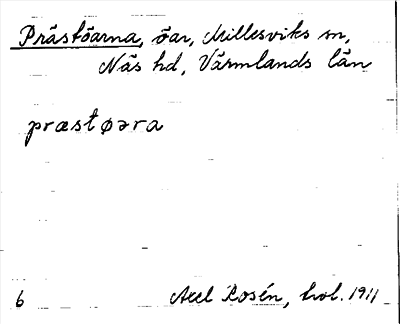 Prästöarna, öar, Millesviks sn,
Näs hd, Värmlands län
præstøəra
6
Axel Rosén, hol. 1911